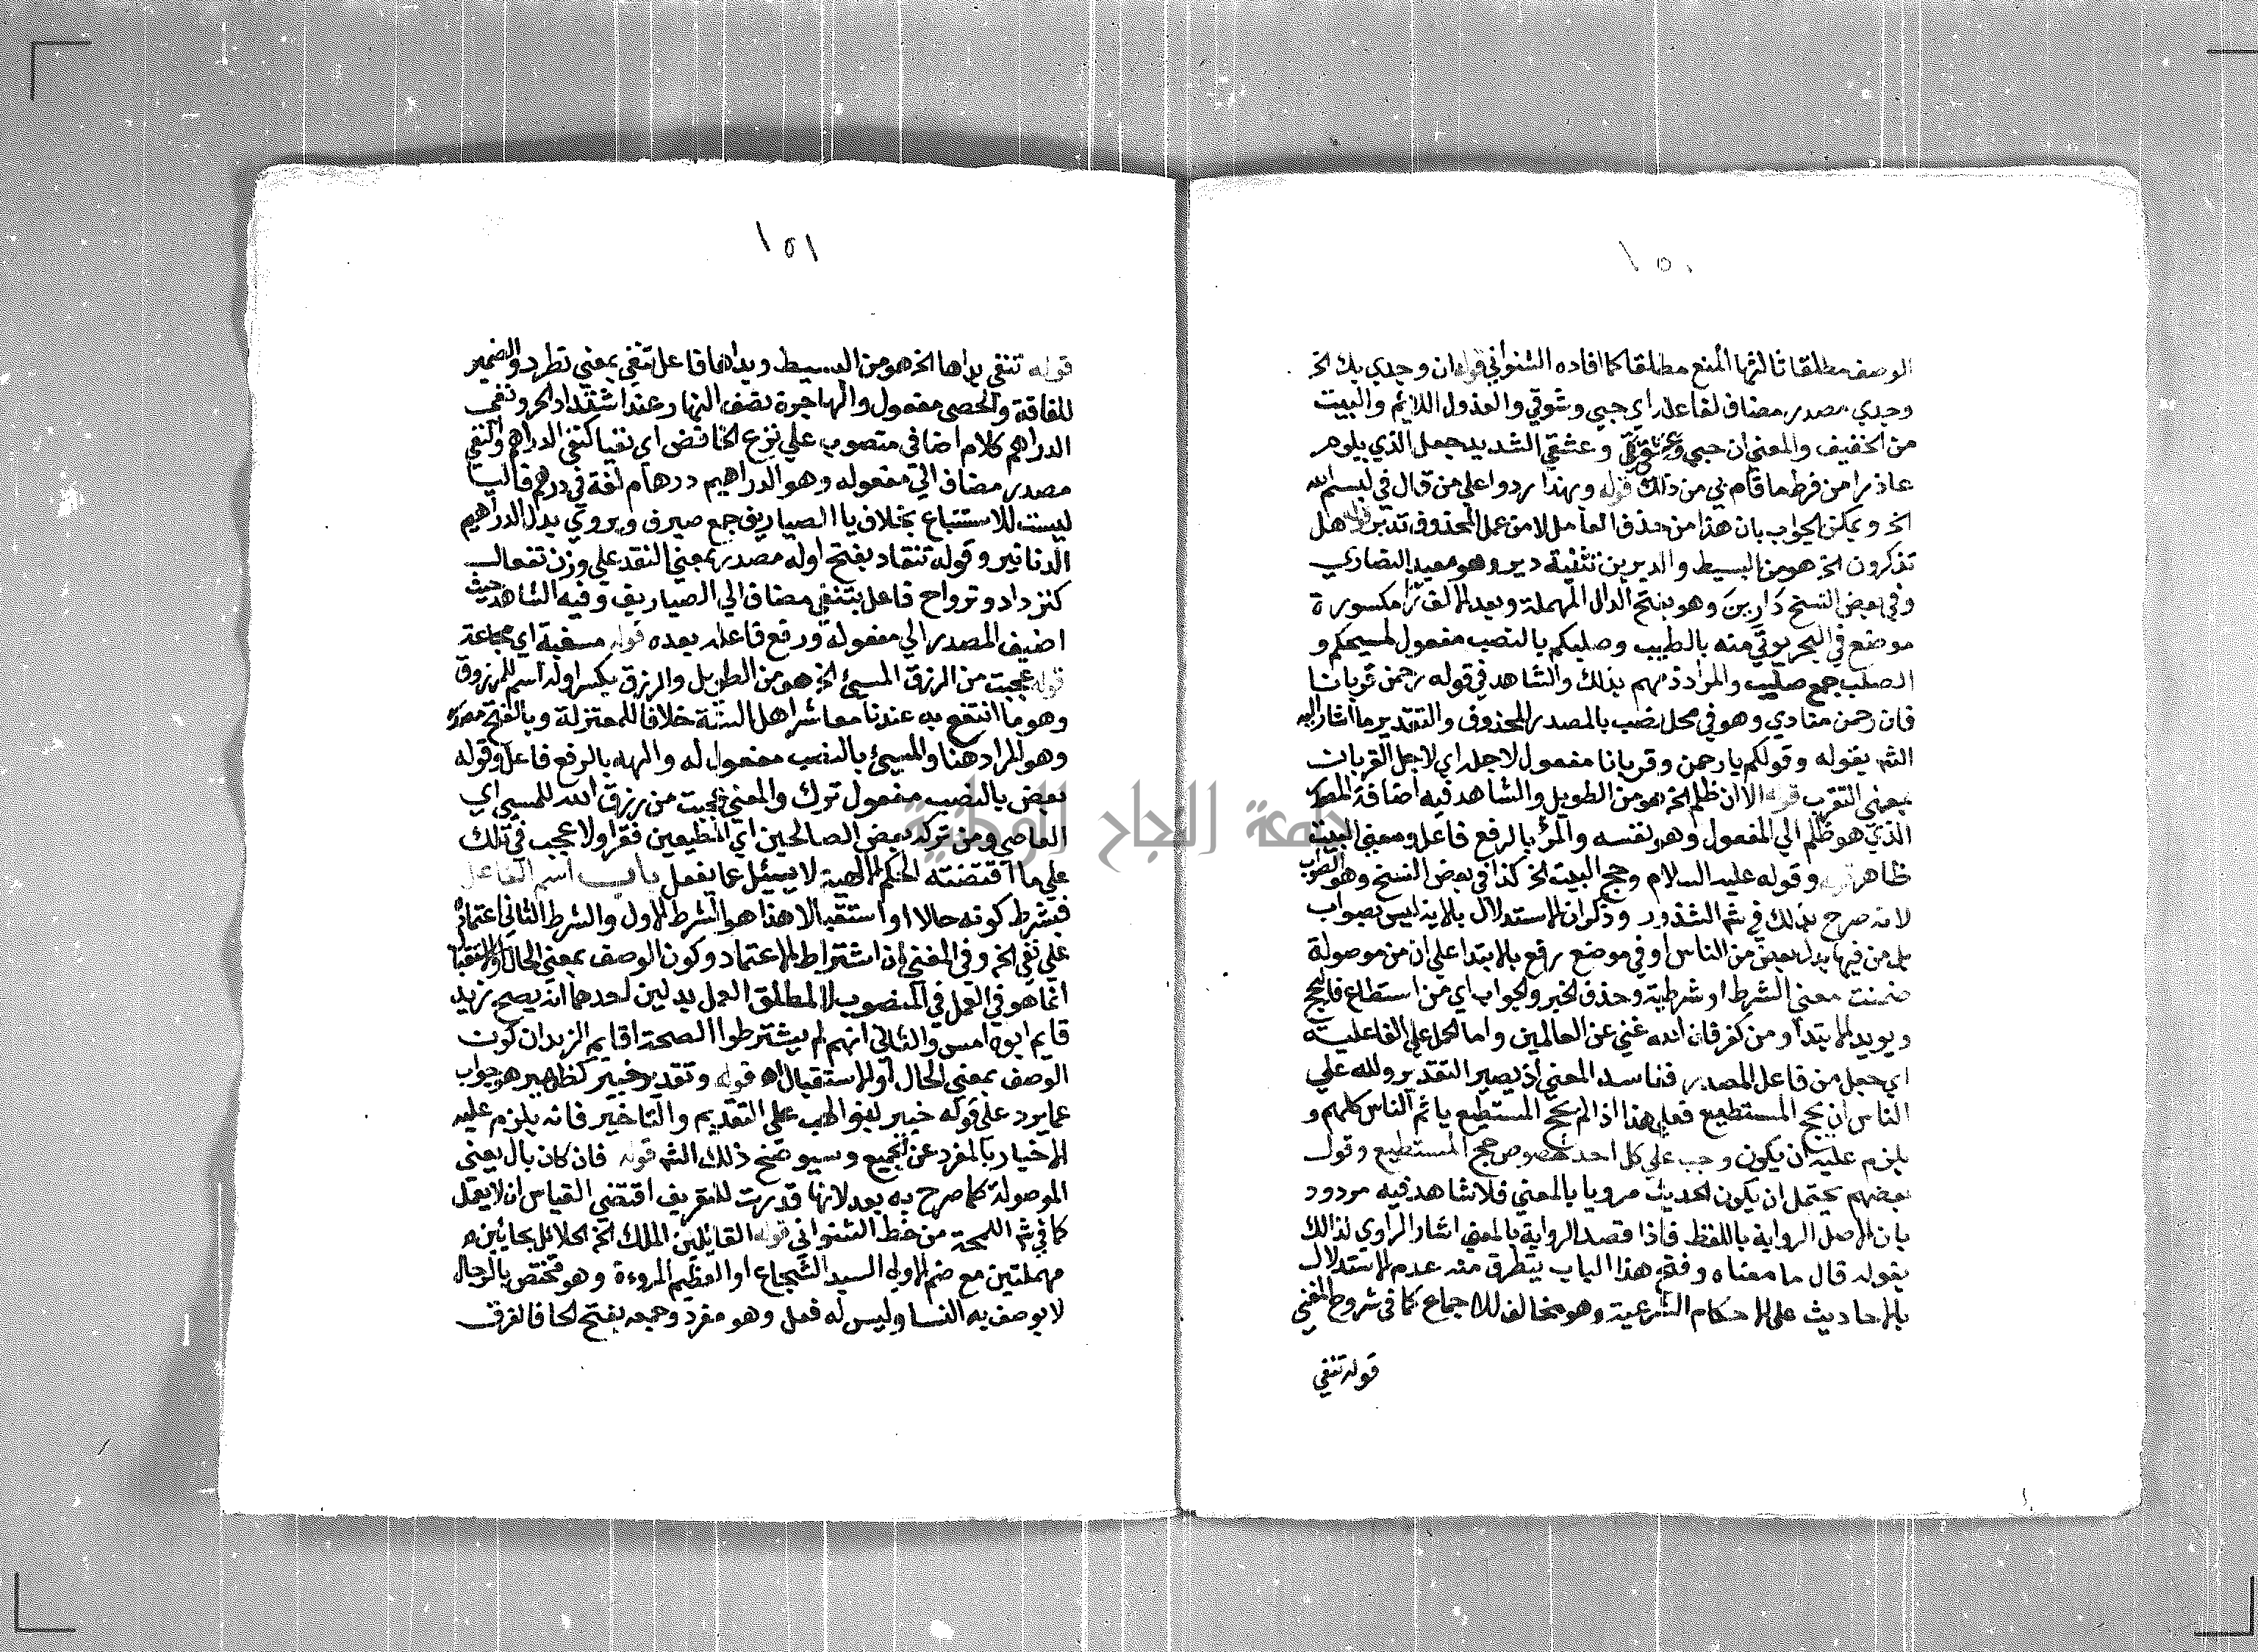 ١٥٠
الوصف مطلقا ثالثها المنع مطلقا كما افاده الشنواني قوله ان وجدي بك الخ
وجدي مصدر مضاف لفاعله اي حبي وشوقي والعذول اللائم والبيت
من الخفيف والمعني ان حبي وعشقي الشديد جعل الذي يلوم
عاذرا من فرط ما قام بي من ذلك قوله وبهذا ردوا علي من قال في بسم الله
الخ ويمكن الجواب بان هذا من حذف العامل لا من عمل المحذوف تدبر قوله هل
تذكرون الخ هو من البسيط والديرين تثنية دير وهو معبد النصاري
وفي بعض النسخ دارين وهو بفتح الدال المهملة وبعد الالف را مكسورة
موضع في البحر يوتي منه بالطيب وصلبكم بالنصب مفعول لمسحكم و
الصلب جمع صليب والمراد ذمهم بذلك والشاهد في قوله رحمن قربانا
فان رحمن منادي وهو في محل نصب بالمصدر المحذوف والتقدير ما اشار اليه
الشم بقوله وقولكم يا رحمن وقربانا مفعول لاجله اي لاجل القربات
بمعني التقرب قوله الا ان ظلم الخ هو من الطويل والشاهد فيه اضافة المصدر
الذي هو ظلم الي المفعول وهو نفسه والمرء بالرفع فاعل ومعني البيت
ظاهر قوله وقوله عليه السلام وحج البيت الخ كذا في بعض النسخ وهو الصواب
لانه صرح بذلك في شم الشذور وذكر ان الاستدلال بالاية ليس بصواب
بل من فيها بدل بعض من الناس او في موضع رفع بالابتدا علي ان من موصولة
ضمنت معني الشرط او شرطية وحذف الخبر والجواب اي من استطاع فليحج
ويويد الابتدا ومن كفر فان الله غني عن العالمين واما الحمل علي الفاعلية
اي جعل من فاعل المصدر ففاسد المعني اذ يصير التقدير ولله علي
الناس ان يحج المستطيع فعلي هذا اذا لم يحج المستطيع ياثم الناس كلهم و
يلزم عليه ان يكون وجب علي كل احد بخصوص حج المستطيع وقول
بعضهم يحتمل ان يكون الحديث مرويا بالمعني فلا شاهد فيه مردود
بان الاصل الرواية باللفظ فاذا قصد الرواية بالمعني اشار الراوي لذلك
بقوله قال ما معناه وفتح هذا الباب يتطرق منه عدم الاستدلال
بالاحاديث علي الاحكام الشرعية وهو مخالف للاجماع كما في شروح المغني
قوله تنفي
١٥١
قوله تنفي يداها الخ هو من البسيط ويداها فاعل تنفي بمعني تطرد والضمير
للناقة والحصي مفعول والهاجرة نصف النهار عند اشتداد الحر ونفي
الدراهم كلام اضافي منصوب علي نزع الخافض اي نفيا كنفي الدراهم والنفي
مصدر مضاف الي مفعوله وهو الدراهيم درهام لغة في درهم فاليا
ليست للاستتباع بخلاف يا الصياريف جمع صيرف ويروي بدل الدراهيم
الدنانير وقوله تنقاد بفتح اوله مصدر بمعني النقد علي وزن تفعال
كتزداد وترواح فاعل بتنفي مضاف الي الصياريف وفيه الشاهد حيث
اضيف المصدر الي مفعوله ورفع فاعله بعده قوله مسغبة اي مجاعة
قوله عجبت من الرزق المسيئ الخ هو من الطويل والرزق بكسر اوله اسم للمرزوق
وهو ما انتفع به عندنا معاشر اهل السنة خلافا للمعتزلة وبالفتح مصدر
وهو المراد هنا والمسيئ بالنصب مفعول له والهه بالرفع فاعل وقوله
بعض بالنصب مفعول ترك والمعني عجبت من رزق الله للمسي اي
العاصي ومن تركه بعض الصالحين اي المطيعين فقرا ولا عجب في ذلك
علي ما اقتضته الحكم الالهية لا يسئل عما يفعل باب اسم الفاعل
فبشرط كونه حالا او استقبالا هذا هو الشرط الاول والشرط الثاني اعتماده
علي نفي الخ وفي المغني ان اشتراط الاعتماد وكون الوصف بمعني الحال او الاستقبال
انما هو في العمل في المنصوب لا لمطلق العمل بدلين احدهما انه يصح زيد
قايم ابوه امس والثاني انهم لم يشترطوا الصحة اقايم الزيدان كون
الوصف بمعني الحال او الاستقبال اه قوله وتقديره خبير كظهير هو جواب
عما يرد علي قوله خبير بنو لهب علي التقديم والتاخير فانه يلزم عليه
الاخبار بالمفرد عن الجميع وسيوضح ذلك الشم قوله فان كان بال يعني
الموصولة كما صرح به بعد لانها قدرت للتعريف اقتضي القياس ان لا يعمل
كما في شم اللمحة من خط الشنواني قوله القاتلين الملك الخ الحلائل بحائين
مهملتين مع ضم الاولي السيد الشجاع او العظيم المروءة وهو مختص بالرجال
لا يوصف به النسا وليس له فعل وهو مفرد وجمعه بفتح الحا فالفرق
جامعة النجاح الوطنية